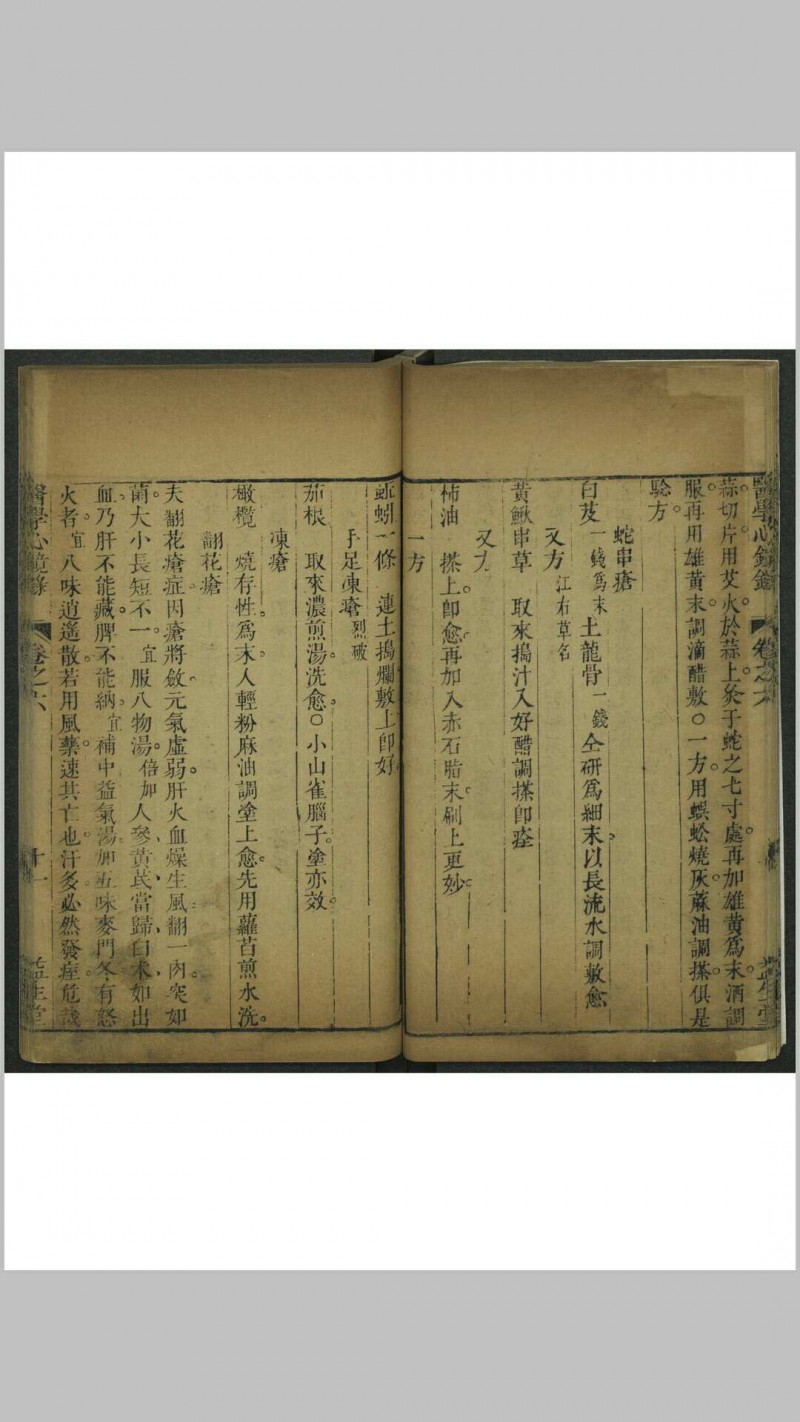 醫學心鏡錄 卷之六
蒜切片用艾火於蒜上灸于蛇之七寸處。再加雄黃爲末。酒調
服。再用雄黃末。調滴醋敷。○一方。用蜈蚣燒灰。蔴油調搽。俱是
驗方。
蛇串瘡
白芨一錢爲末 土龍骨一錢 仝研爲細末。以長流水調敷愈
又方 江右草名
黃鰍串草 取來搗汁入好醋調搽即痊
又方
柿油 搽上即愈。再加入赤石脂末。刷上更妙。
一方
蚯蚓一條 連土搗爛敷上即好
手足凍瘡烈破
茄根 取來濃煎湯。洗愈。○小山雀腦子。塗亦效。
凍瘡
橄欖 燒存性。爲末。人輕粉麻油調塗上愈。先用蘿苩煎水洗。
翻花瘡
夫翻花瘡症。因瘡將斂。元氣虛弱。肝火血燥生風。翻一肉突如
菌。大小長短不一。宜服八物湯。倍加人參、黃芪、當歸、白朮。如出
血。乃肝不能藏。脾不能納。宜補中益氣湯。加五味麥門冬。有怒
火者。宜八味逍遙散。若用風藥。速其亡也。汗多必然發痓。危哉
醫學心鏡錄 卷之六 十一 益生堂